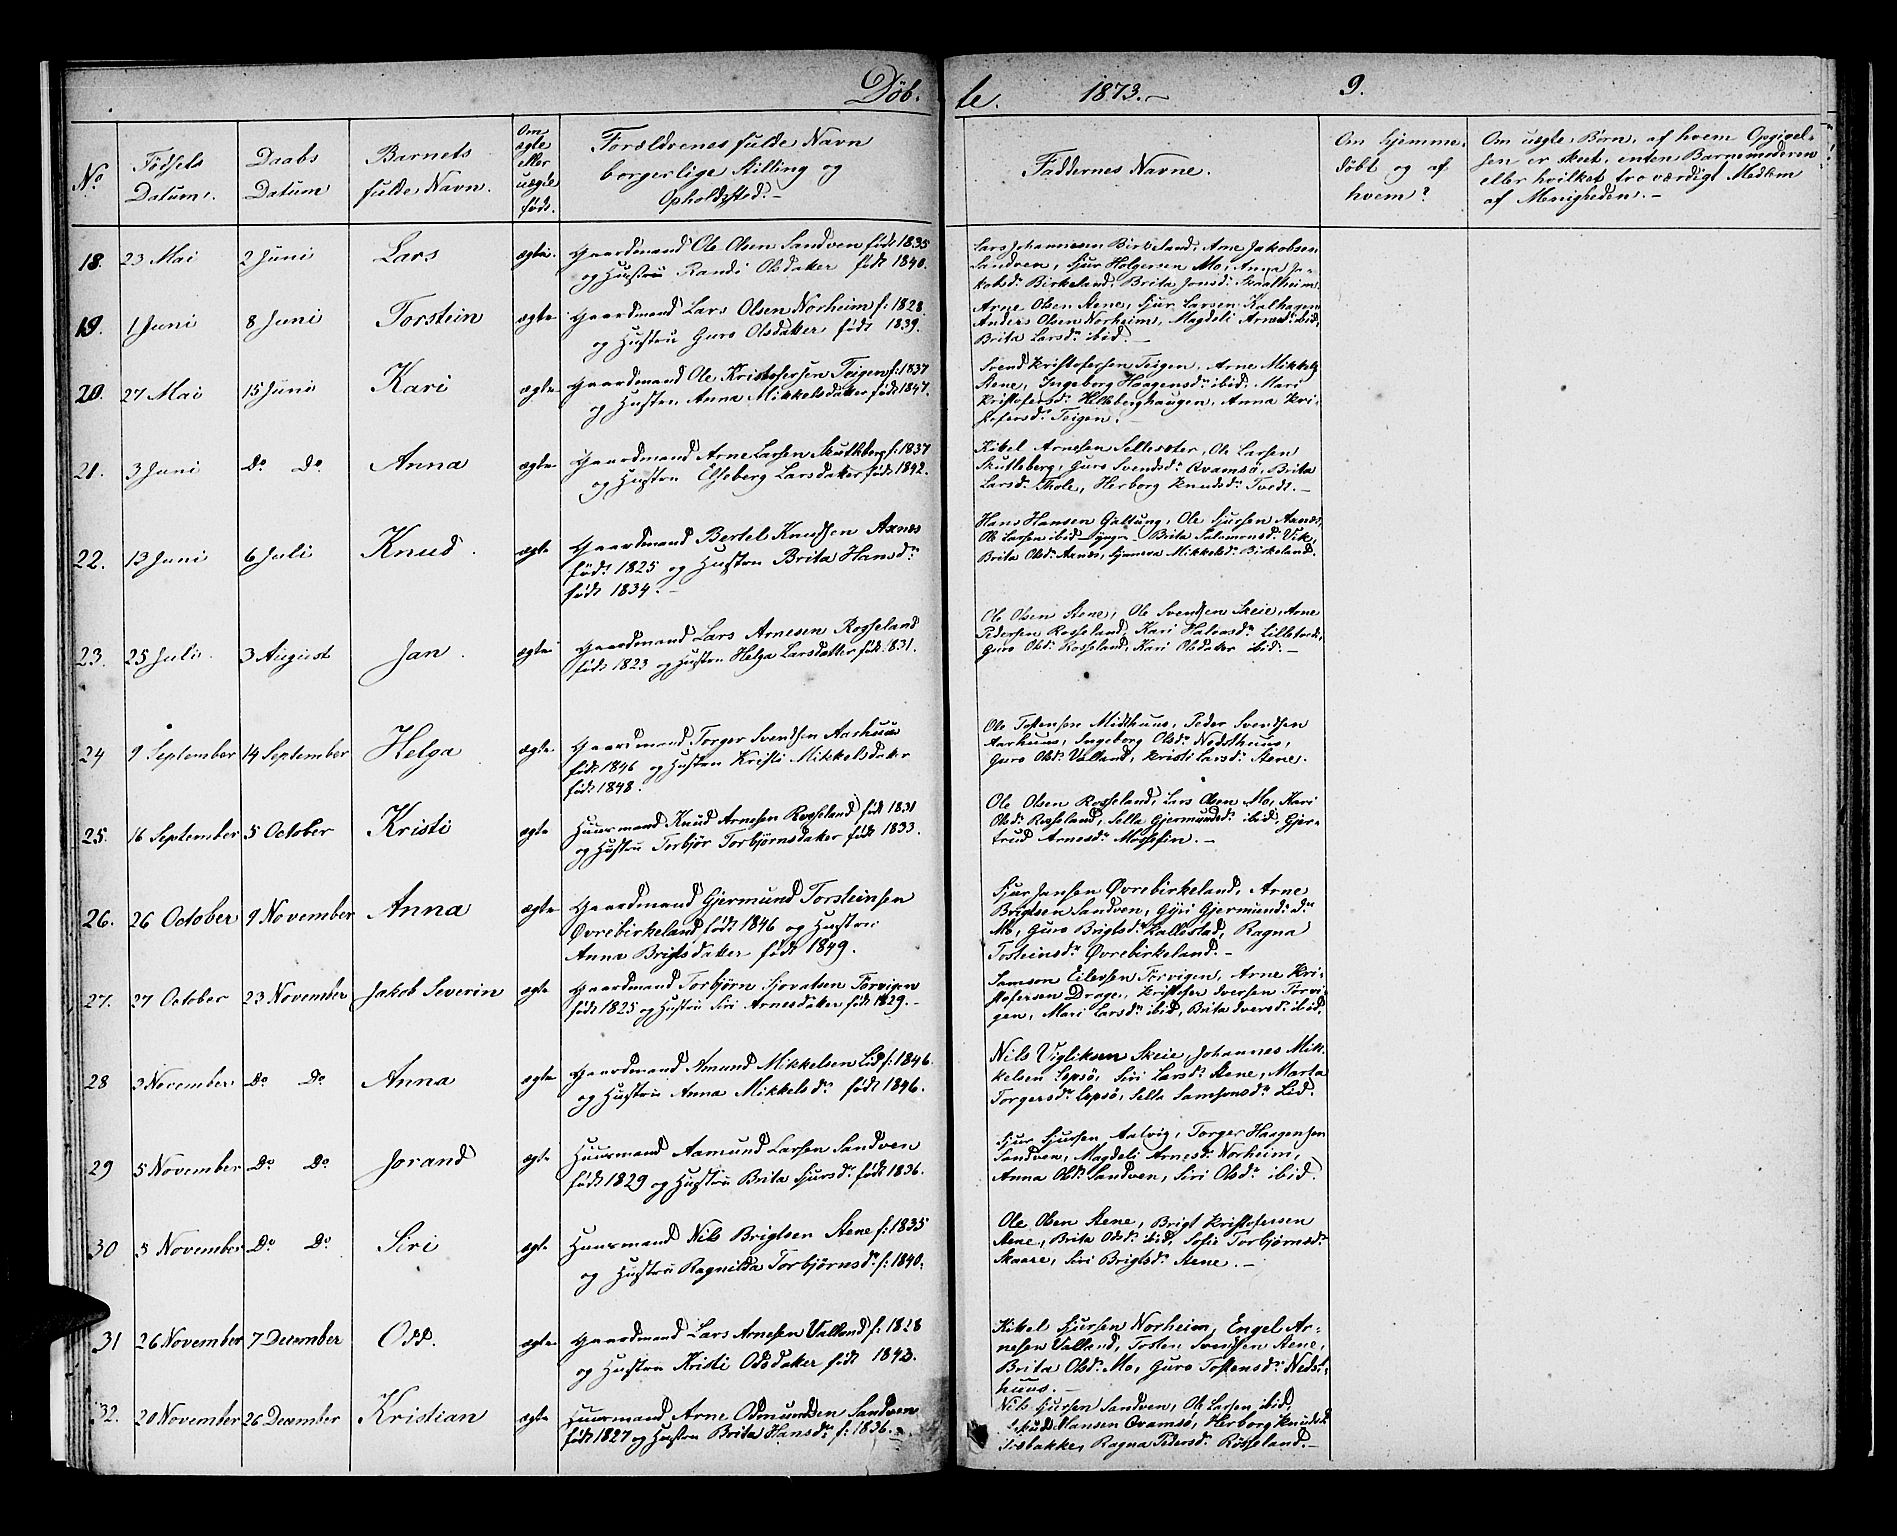 Døb-
te.
1873.-
9.
No
Fødsels
Datum.
Daabs
Datum
Barnets
fulde Navn.
Om
ægte
eller
uægte
født.
Forældrenes fulde Navn
borgerlige Stilling og
Opholdssted.-
Faddernes Navne.
Om hjemme-
døbt og af
hvem?
Om uægte Børn, af hvem Opgivel-
sen er skeet, enten Barnemoderen
eller hvilket troværdigt Medlem
af Menigheden.-
18. 23 Mai 2 Juni Lars ægte.
Gaardmand Ole Olsen Sandven født 1835
og Hustru Randi Olsdatter født 1840.
Lars Johannesen Birkeland, Arne Jakobsen
Sandven, Sjur Holgersen Mo, Anna Ja-
kobsd: Birkeland, Brita Jonsd: Skaalheim.
19. 1 Juni 8 Juni Torstein ægte
Gaardmand Lars Olsen Norheim f: 1828.
og Hustru Guro Olsdatter født 1839.
Arne Olsen Stene, Sjur Larsen Kalhagen
Anders Olsen Norheim, Magdeli Arnesd: ibid,
Brita Larsdr ibid.-
20. 27 Mai 15 Juni Kari ægte
Gaardmand Ole Kristofersen Teigen f: 1837
og Hustru Anna Mikkelsdatter født 1847.
Svend Kristofersen Teigen, Arne Mikkels
Stene, Ingeborg Haagensdr ibid. Mari
Kristofersdr Hilbberghaugen, Anna Kri-
stofersdr Teigen.
21. 3 Juni Do Do Anna ægte
Gaardmand Arne Larsen Skutleberg f: 1837
og Hustru Elseberg Larsdatter født 1842.
Kitel Arnesen Sellesæter, Ole Larsen
Skutleberg, Guro Svendsdr Qvamsø, Brita
Larsd: Thole, Herborg Knudsdr Tvedt.-
22. 13 Juni 6 Juli Knud. ægte
Gaardmand Bertel Knudsen Axnæs
født 1825 og Hustru Brita Hansdr
født 1834.-
Hans Hansen Galtung, Ole Sjursen Axnæs,
Ole Larsen ibid yngre - Brita Salamonsdr Vik,
Brita Olsd: Axnæs, Gunvor Mikkelsdr Birkeland.
23. 25 Juli 3 August Jan. ægte
Gaardmand Lars Arnesen Rosseland
født 1823 og Hustru Helga Larsdatter født 1831.
Ole Olsen Stene, Ole Svendsen Skeie, Arne
Pedersen Rosseland, Kari Halvorsdr Lilletvedt,
Guro Olsd: Rosseland, Kari Olsdatter ibid.-
24 9 September 14 September Helga ægte
Gaardmand Torger Svendsen Aarhuus
født 1846 og Hustru Kristi Mikkelsdatter
født 1848.
Ole Tostensen Midthuus, Peder Svendsen
Aarhuus, Ingeborg Olsdr Nedsthuus,
Guro Olsd: Valland, Kristi Larsdr Stene.
25. 16 September 5 October Kristi ægte
Huusmand Knud Arnesen Rosseland født 1831
og Hustru Torbjør Torbjørnsdatter født 1833.
Ole Olsen Rosseland, Lars Olsen Mo, Kari
Olsd: Rosseland, Sella Gjermundsdr ibid, Gjer-
trud Arnesdr Mossefin.-
26. 26 October 9 November Anna ægte
Gaardmand Gjermund Torsteinsen
Øvrebirkeland født 1846 og Hustru
Anna Brigtsdatter født 1849.
Sjur Jansen Øvrebirkeland, Arne
Brigtsen Sandven, Gyri Gjermundsdr
Mo, Guro Brigtsdr Kallestad, Ragna
Tosteinsdr Øvrebirkeland.-
27. 27 October 23 November Jakob Severin ægte
Gaardmand Torbjørn Sjovatsen Tørvigen
født 1825 og Hustru Siri Arnesdatter født 1829.-
Samson Eilevsen Tørvigen, Arne Kri-
stofersen Drage, Kristofer Iversen Tørvi-
gen, Mari Larsdr ibid, Brita Iversdr ibid.
28 3 November Do Do Anna ægte
Gaardmand Amund Mikkelsen Lid f: 1846.
og Hustru Anna Mikkelsdr født 1846.
Nils Vigliksen Skeie, Johannes Mik-
kelsen Lepsø, Siri Larsdr Stene, Marta
Torgersdr Lepsø, Sella Samsonsdr Lid.
29 5 November Do Do Jorand ægte
Huusmand Aamund Larsen Sandven
født 1829 og Hustru Brita Sjursdr født 1836.
Sjur Sjursen Aalvig, Torger Haagensen
Sandven, Magdeli Arnesd: Norheim,
Anna Olsdr Sandven, Siri Olsdr ibid.
30 5 November Do Do Siri ægte
Huusmand Nils Brigtsen Stene f: 1835
og Hustru Ragnilda Torbjørnsdr f: 1840.
Ole Olsen Stene, Brigt Kristofersen
Stene, Brita Olsd: ibid, Sofie Torbjørnsdr
Skaare, Siri Brigtsdr Stene.-
31 26 November 7 December Odd. ægte
Gaardmand Lars Arnesen Valland f: 1828
og Hustru Kristi Oddsdatter født 1843.
Kitel Sjursen Norheim, Engel Ar-
nesen Valland, Tosten Svendsen Stene,
Brita Olsdr Mo, Guro Tostensdr Nedst-
huus.-
32. 20 November 26 December Kristian ægte
Huusmand Arne Odmundsen Sandven
født 1827 og Hustru Brita Hansdr f: 1836.-
Nils Sjursen Sandven, Ole Larsen ibid,
Hansen Qvamsø, Herborg Knudsd
Tvsbakke, Ragna Pedersdr Rosseland.-